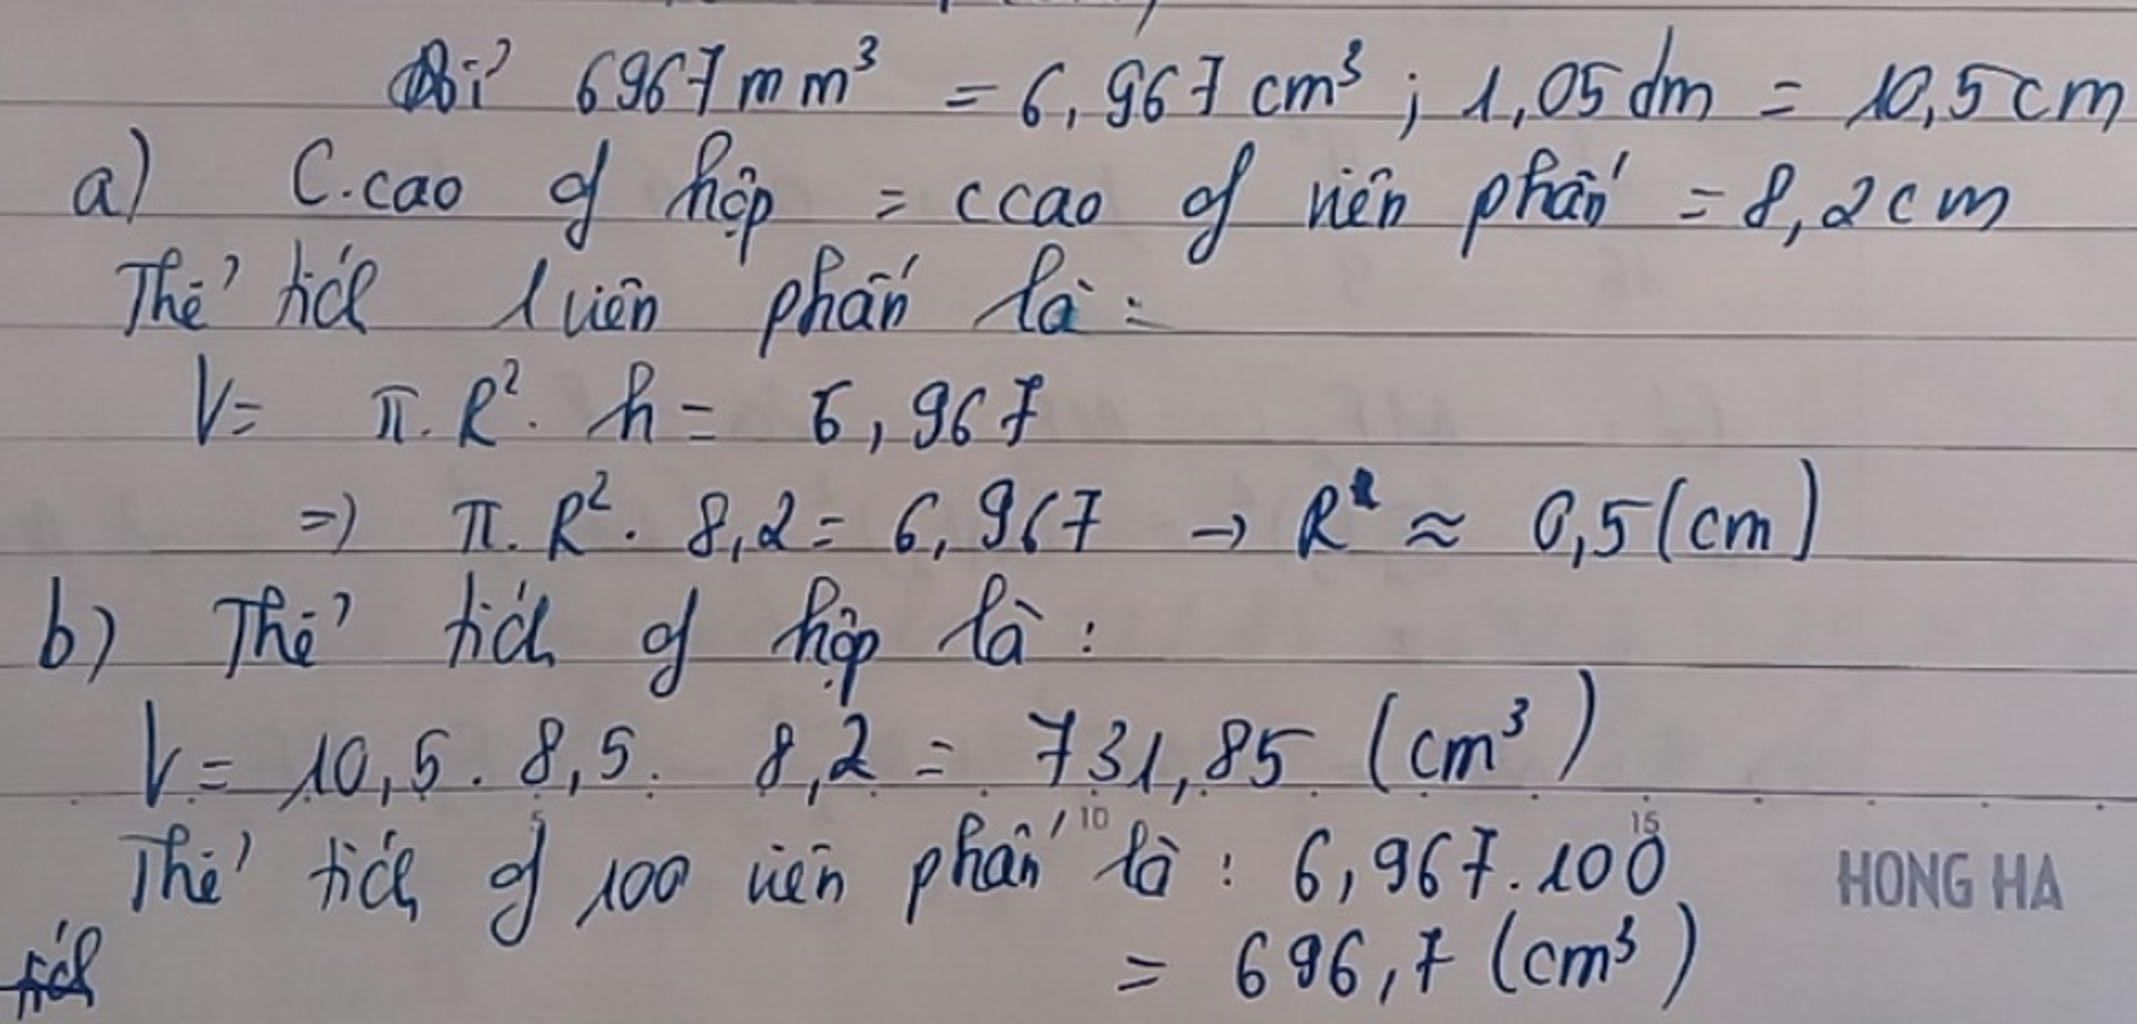 Đổi 6967 mm³ = 6,967 cm³ ; 1,05 dm = 10,5 cm
a) C.cao of hộp = ccao of viên phấn = 8,2 cm
Thể tích 1 viên phấn là :
V = π. R². h = 6,967
=> π. R². 8,2 = 6,967 → R ≈ 0,5 (cm)
b) Thể tích of hộp là :
V = 10,5 . 8,5 . 8,2 = 731,85 (cm³)
5 10 15
Thể tích of 100 viên phấn là : 6,967 . 100
HONG HA
= 696,7 (cm³)
tích